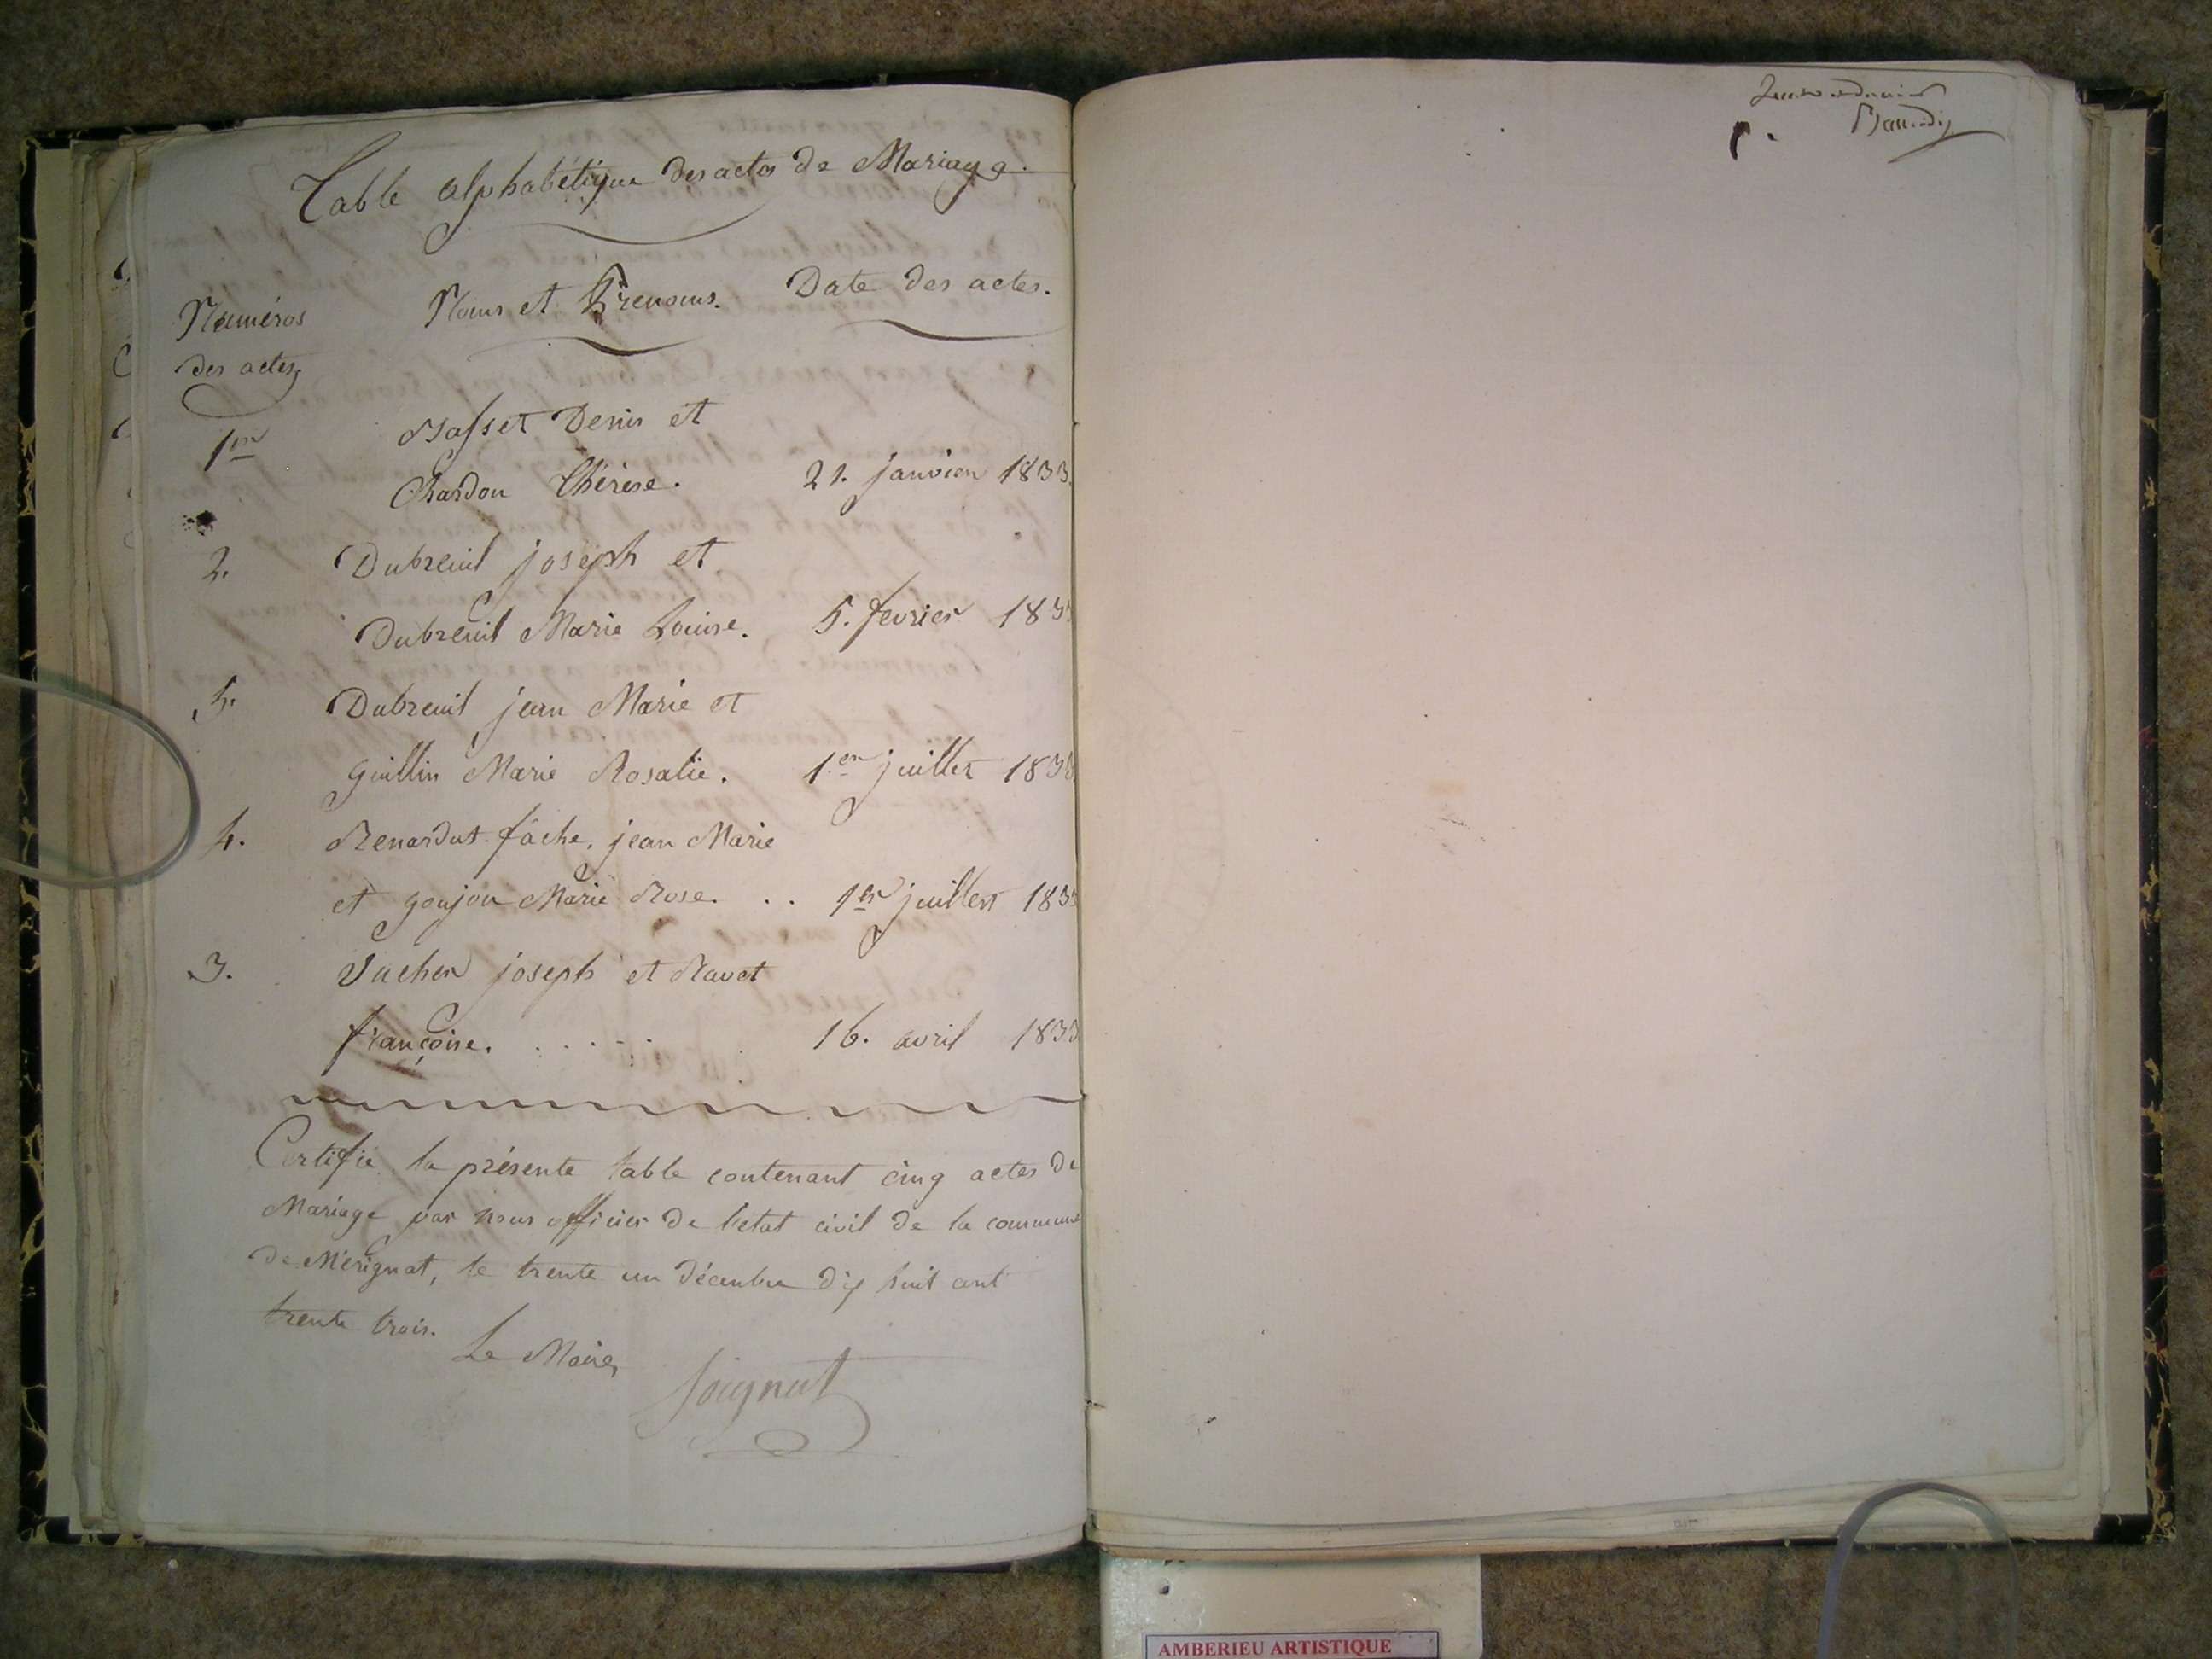 Table alphabétique des actes de Mariage.
Numéros
des actes
Noms et Prenoms.
Date des actes.
1er
Basset Denis et
Chardon Thérèse. 21. janvier 1833.
2.
Dubreuil joseph et
Dubreuil Marie Louise. 5. fevrier 183
5.
Dubreuil jean Marie et
guillin Marie Rosalie. 1er juillet 1833
4.
Renardat fâche, jean Marie
et goujon Marie Rose. . . 1er juillet 183
3.
Vucher joseph et Ravet
françoise. . . . . . . 16. avril 1833
Certifié la présente table contenant cinq actes de
Mariage par nous officier de l'etat civil de la commune
de Mérignat, le trente un décembre dix huit cent
trente trois.
Le Maire,
Joignat
AMBERIEU ARTISTIQUE